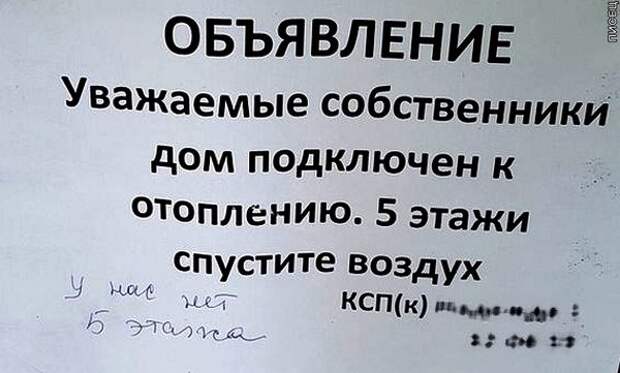 ОБЪЯВЛЕНИЕ
Уважаемые собственники
дом подключен к
отоплению. 5 этажи
спустите воздух
КСП(к)
у нас нет
5 этажа
ПИСЕЦ